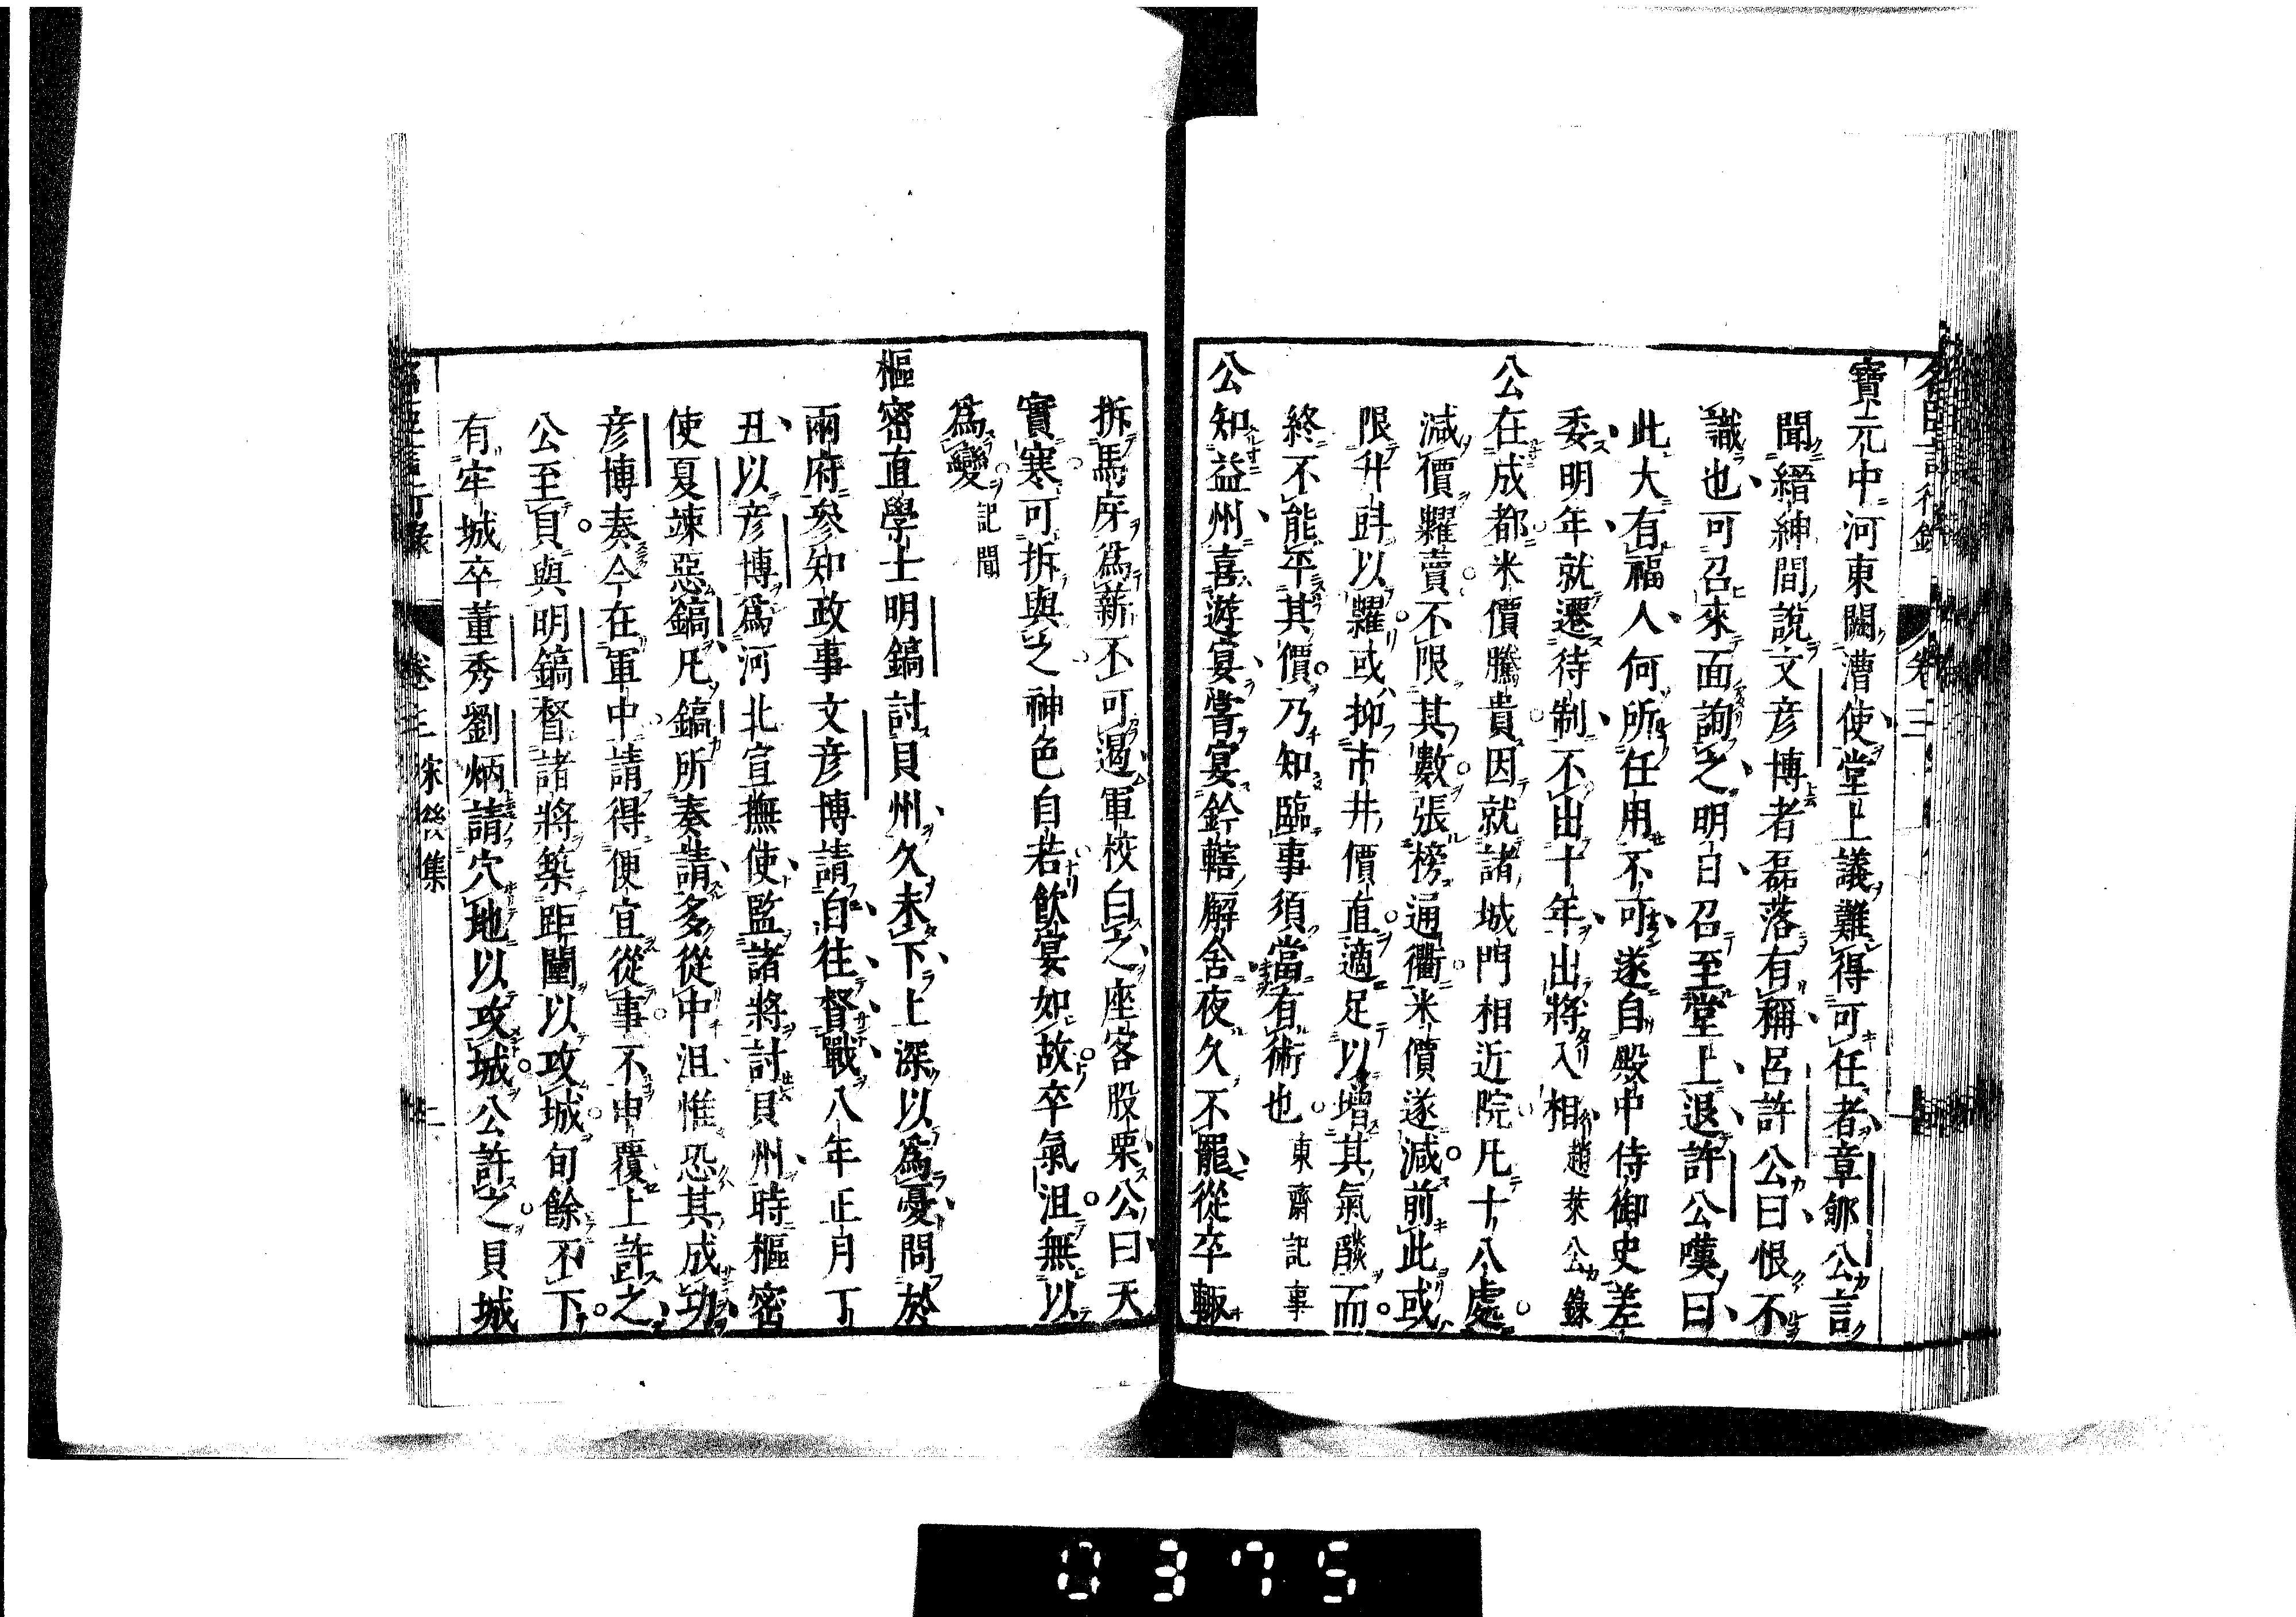 寶元中河東闕漕使堂上議難得可任者章郇公言
聞縉紳間說文彦博者磊落有稱呂許公曰恨不
識也可召來面詢之明日召至堂上退許公嘆曰
此大有福人何所任用不可遂自殿中侍御史差
委明年就遷待制不出十年出將入相趙萊公錄
公在成都米價騰貴因就諸城門相近院凡十八處
減價糶賣不限其數張榜通衢米價遂減前此或
限升斗以糶或抑市井價直適足以增其氣燄而
終不能平其價乃知臨事須當有術也東齋記事
公知益州喜遊宴嘗宴鈐轄廨舍夜久不罷從卒輙
拆馬序爲薪不可遏軍校白之座客股栗公曰天
實寒可拆與之神色自若飲宴如故卒氣沮無以
爲變記聞
樞密直學士明鎬討貝州久未下上深以爲憂問於
兩府參知政事文彦博請自往督戰八年正月丁
丑以彦博爲河北宣撫使監諸將討貝州時樞密
使夏竦惡鎬凡鎬所奏請多從中沮惟恐其成功
彦博奏今在軍中請得便宜從事不中覆上許之
公至貝與明鎬督諸將築距闉以攻城旬餘不下
有牢城卒董秀劉炳請穴地以攻城公許之貝城
卷三
0375